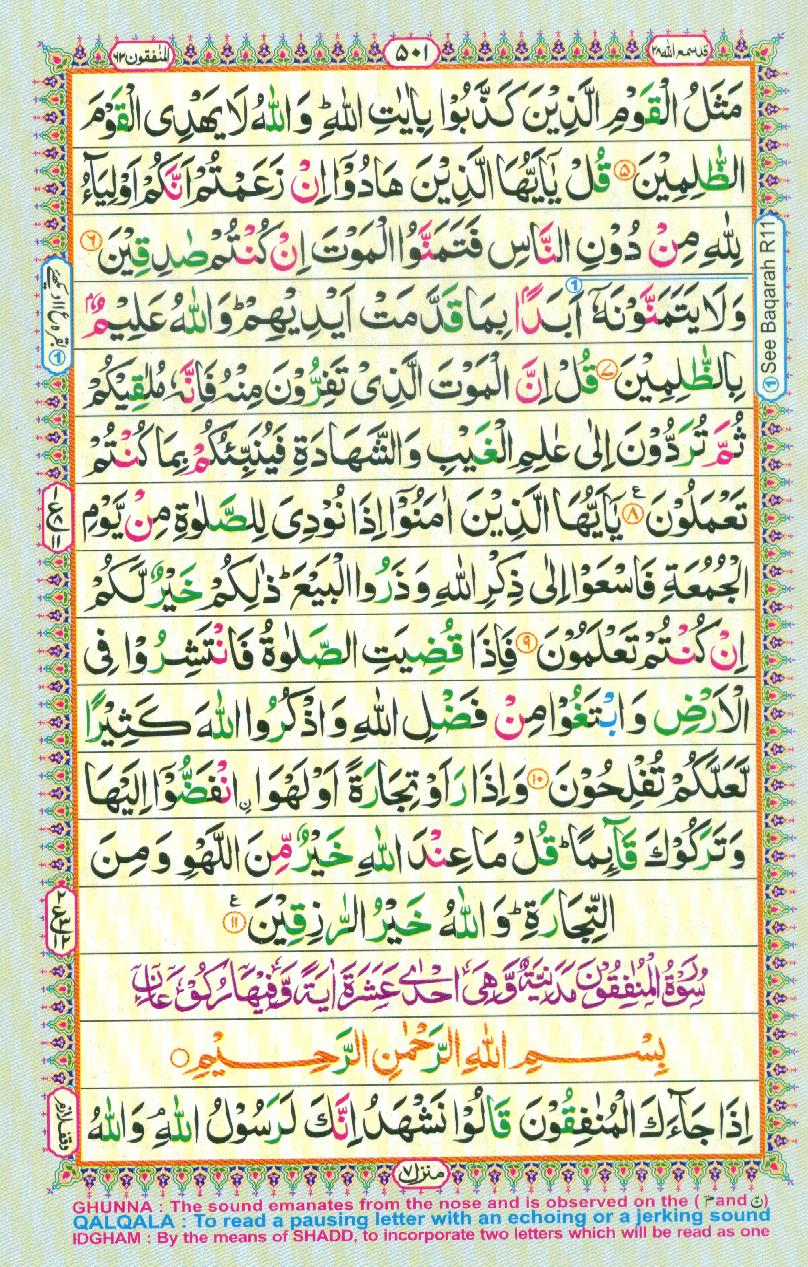 قد سمع الله ٢٨
٥٠١
المنفقون ٦٣
مَثَلُ الْقَوْمِ الَّذِيْنَ كَذَّبُوْا بِاٰيٰتِ اللّٰهِ ؕ وَاللّٰهُ لَا يَهْدِى الْقَوْمَ
الظّٰلِمِيْنَ ۵ قُلْ يٰۤاَيُّهَا الَّذِيْنَ هَادُوْۤا اِنْ زَعَمْتُمْ اَنَّكُمْ اَوْلِيَآءُ
لِلّٰهِ مِنْ دُوْنِ النَّاسِ فَتَمَنَّوُا الْمَوْتَ اِنْ كُنْتُمْ صٰدِقِيْنَ ۶
وَلَا يَتَمَنَّوْنَهٗۤ اَبَدًۢا بِمَا قَدَّمَتْ اَيْدِيْهِمْ ؕ وَاللّٰهُ عَلِيْمٌۢ
بِالظّٰلِمِيْنَ ۷ قُلْ اِنَّ الْمَوْتَ الَّذِىْ تَفِرُّوْنَ مِنْهُ فَاِنَّهٗ مُلٰقِيْكُمْ
ثُمَّ تُرَدُّوْنَ اِلٰى عٰلِمِ الْغَيْبِ وَالشَّهَادَةِ فَيُنَبِّئُكُمْ بِمَا كُنْتُمْ
تَعْمَلُوْنَ ۸ ع يٰۤاَيُّهَا الَّذِيْنَ اٰمَنُوْۤا اِذَا نُوْدِىَ لِلصَّلٰوةِ مِنْ يَّوْمِ
الْجُمُعَةِ فَاسْعَوْا اِلٰى ذِكْرِ اللّٰهِ وَذَرُوا الْبَيْعَ ؕ ذٰلِكُمْ خَيْرٌ لَّكُمْ
اِنْ كُنْتُمْ تَعْلَمُوْنَ ۹ فَاِذَا قُضِيَتِ الصَّلٰوةُ فَانْتَشِرُوْا فِى
الْاَرْضِ وَابْتَغُوْا مِنْ فَضْلِ اللّٰهِ وَاذْكُرُوا اللّٰهَ كَثِيْرًا
لَّعَلَّكُمْ تُفْلِحُوْنَ ۱۰ وَاِذَا رَاَوْ تِجَارَةً اَوْ لَهْوَا ۨانْفَضُّوْۤا اِلَيْهَا
وَتَرَكُوْكَ قَآئِمًا ؕ قُلْ مَا عِنْدَ اللّٰهِ خَيْرٌ مِّنَ اللَّهْوِ وَمِنَ
التِّجَارَةِ ؕ وَاللّٰهُ خَيْرُ الرّٰزِقِيْنَ ۱۱ ع
سُوْرَةُ الْمُنٰفِقُوْنَ مَدَنِيَّةٌ وَّهِىَ اِحْدٰى عَشَرَةَ اٰيَةً وَّفِيْهَا رُكُوْعَانِ
بِسْمِ اللّٰهِ الرَّحْمٰنِ الرَّحِيْمِ
اِذَا جَآءَكَ الْمُنٰفِقُوْنَ قَالُوْا نَشْهَدُ اِنَّكَ لَرَسُوْلُ اللّٰهِ ۘ وَاللّٰهُ
① See Baqarah R11
وقف لازم
منزل ۷
GHUNNA : The sound emanates from the nose and is observed on the ( م and ن )
QALQALA : To read a pausing letter with an echoing or a jerking sound
IDGHAM : By the means of SHADD, to incorporate two letters which will be read as one